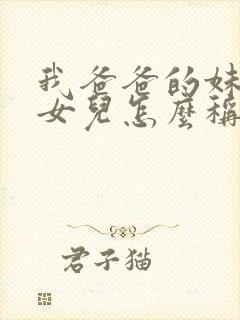 我爸爸的妹
女兒怎麼稱
君子猫